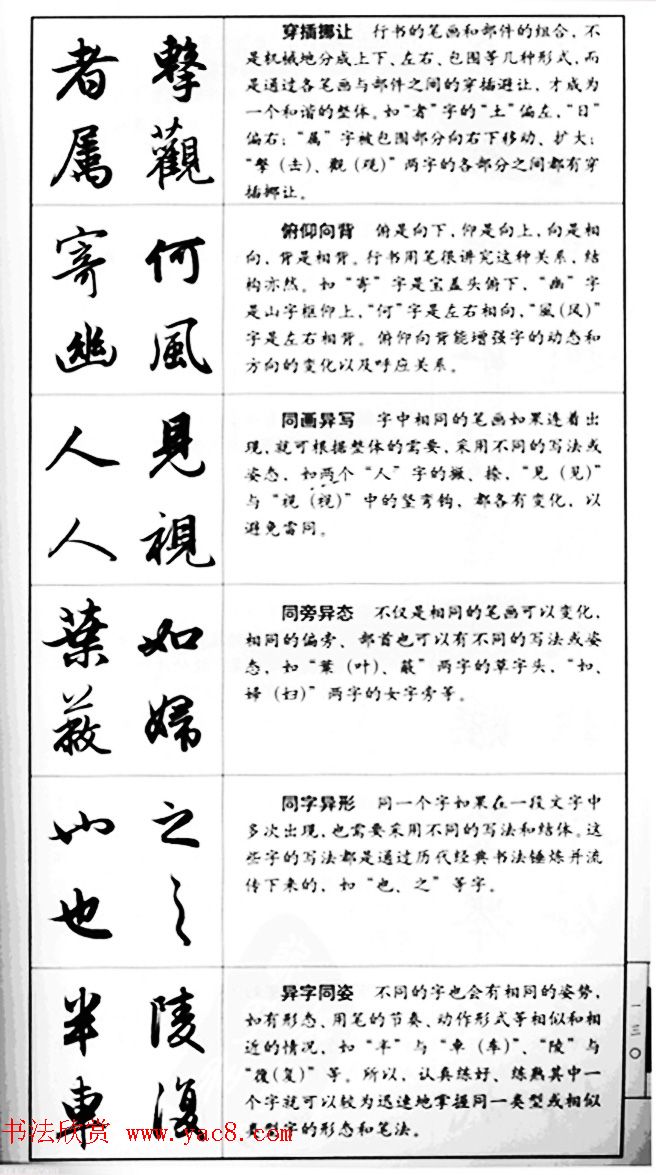 者 擊
属 觀
穿插挪让 行书的笔画和部件的组合，不
是机械地分成上下、左右、包围等几种形式，而
是通过各笔画与部件之间的穿插避让，才成为
一个和谐的整体。如“者”字的“土”偏左，“日”
偏右；“属”字被包围部分向右下移动、扩大；
“擊（击）、觀（观）”两字的各部分之间都有穿
插挪让。
寄 何
幽 風
俯仰向背 俯是向下，仰是向上，向是相
向，背是相背。行书用笔很讲究这种关系，结
构亦然。如“寄”字是宝盖头俯下，“幽”字
是山字框仰上，“何”字是左右相向，“風（风）”
字是左右相背。俯仰向背能增强字的动态和
方向的变化以及呼应关系。
人 見
人 視
同画异写 字中相同的笔画如果连着出
现，就可根据整体的需要，采用不同的写法或
姿态，如两个“人”字的撇、捺，“見（见）”
与“視（视）”中的竖弯钩，都各有变化，以
避免雷同。
葉 如
蔽 婦
同旁异态 不仅是相同的笔画可以变化，
相同的偏旁、部首也可以有不同的写法或姿
态，如“葉（叶）、蔽”两字的草字头，“如、
婦（妇）”两字的女字旁等。
也 之
也 之
同字异形 同一个字如果在一段文字中
多次出现，也需要采用不同的写法和结体。这
些字的写法都是通过历代经典书法锤炼并流
传下来的，如“也、之”等字。
半 陵
車 復
异字同姿 不同的字也会有相同的姿势，
如有形态、用笔的节奏、动作形式等相似和相
近的情况，如“半”与“車（车）”、“陵”与
“復（复）”等。所以，认真练好、练熟其中一
个字就可以较为迅速地掌握同一类型或相似
类型字的形态和笔法。
一三〇
书法欣赏 www.yac8.com